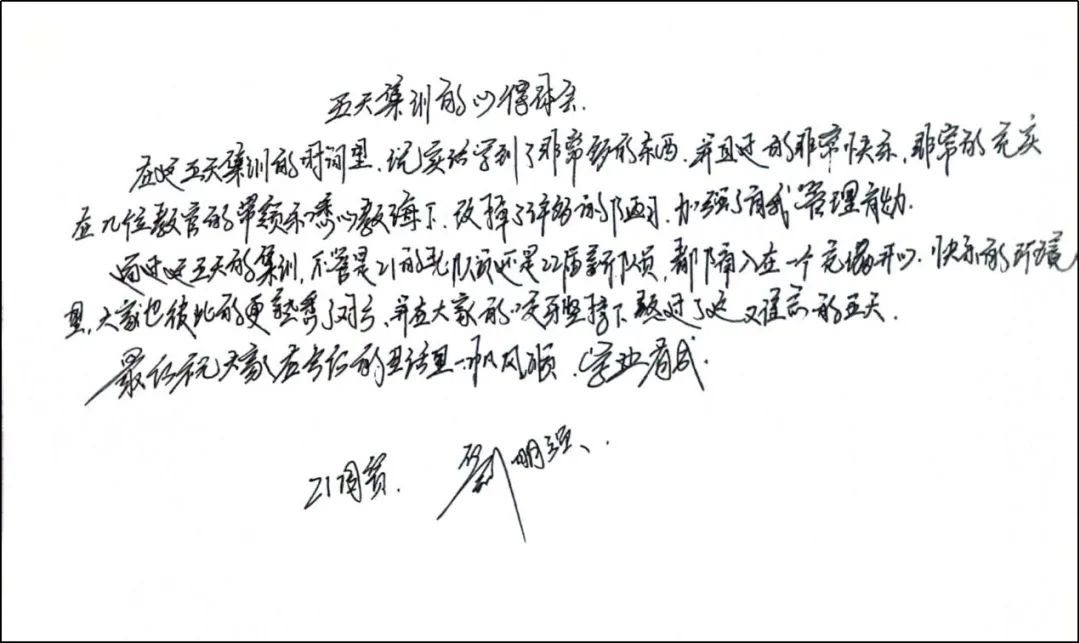 五天集训的心得体会.
在这五天集训的时间里,说实话学到了非常多的东西,并且过的非常快乐,非常的充实
在几位教官的带领和悉心教诲下,改掉了许多的陋习,加强了自我管理能力.
通过这五天的集训,不管是21的老队员还是22届新队员,都融入在一个充满开心、快乐的环境
里,大家也彼此的更熟悉了对方,并在大家的咬牙坚持下熬过了这 难忘的五天.
最后祝大家在今后的生活里一帆风顺,学业有成.
21国贸. 刘明强、